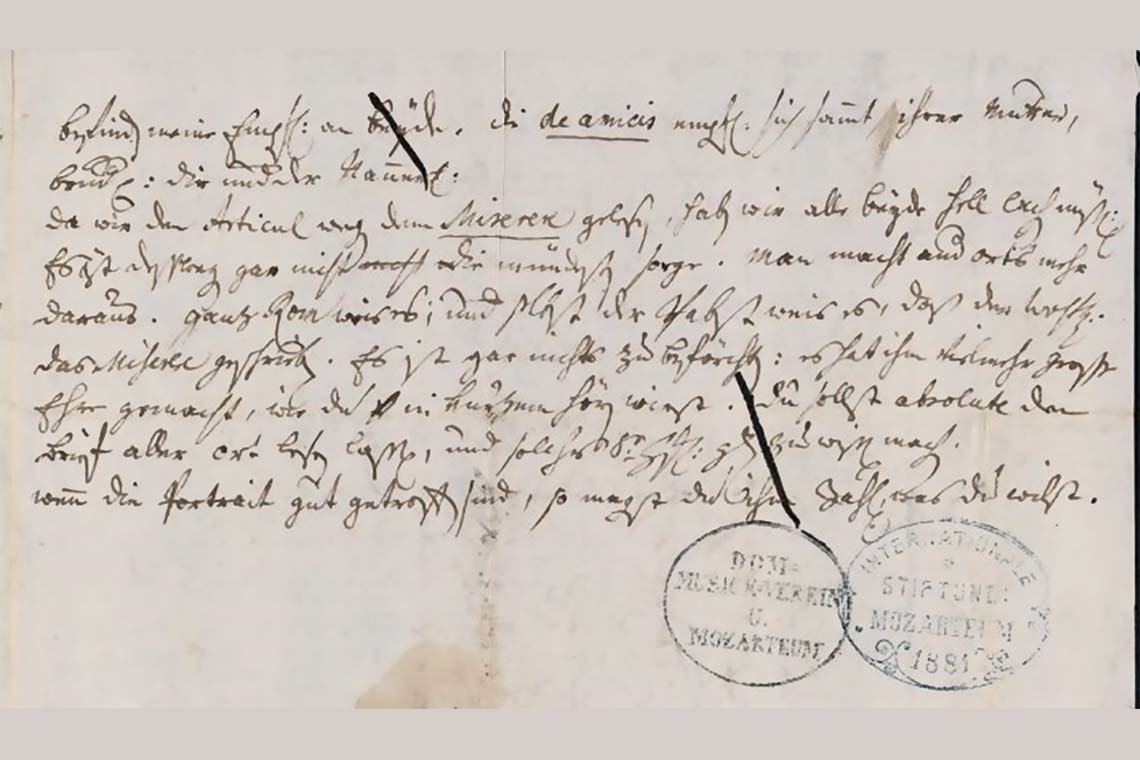 befinden meine Empf: an beyde. die de amicis empf: sich sammt ihrer Mutter,
dir und der Nannerl:
da wir den Articul wegen dem Miserere gelesen, haben wir alle beyde hell lachen müssen.
Es ist desswegen gar nicht die mündeste sorge. Man macht and orts mehr
daraus. ganz Rom weis es; und selbst der Pabst weis es, daß der Wolfg:
das Miserere geschrieben. Es ist gar nichts zu beförchten: es hat ihm vielmehr grosse
Ehre gemacht, wie du in kurzem hören wirst. Du sollst absolute den
brief aller ort lesen lassen, und solches Sr: Hfl: gden zu wissen machen.
wenn die Portrait gut getroffen sind, so magst du ihm zahlen, was du wilst.
DOM=
MUSICK-VEREIN
U.
MOZARTEUM
INTERNATIONALE
STIFTUNG:
MOZARTEUM
1881